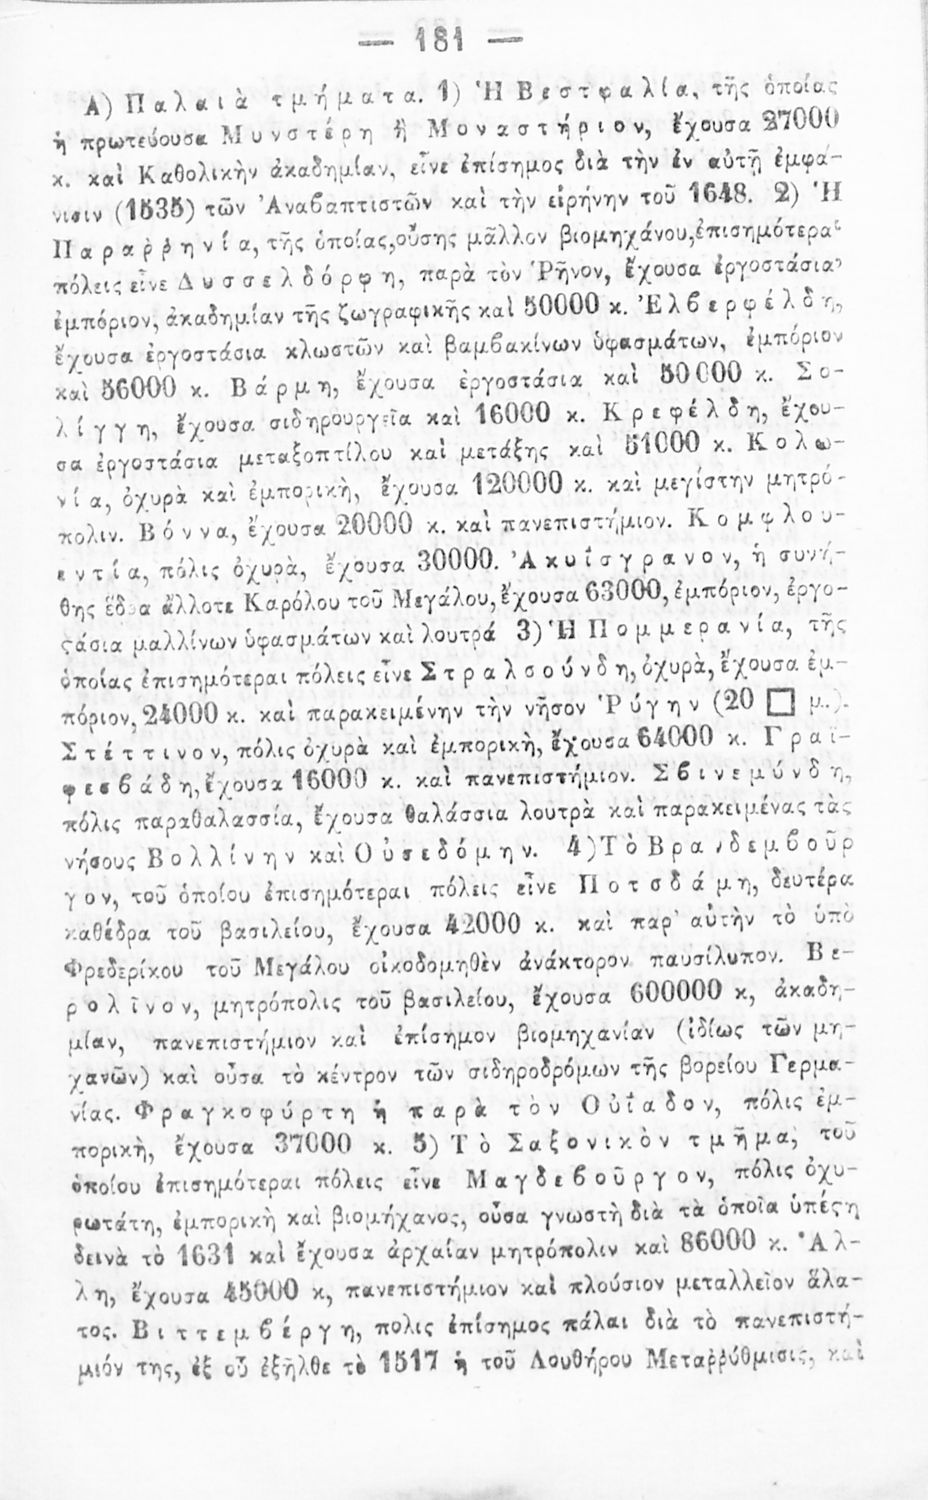 — 181 —
Α) Παλαιὰ τμήματα. 1) Ἡ Βεστφαλία, τῆς ὁποίας
ἡ πρωτεύουσα Μυνστέρη ἢ Μοναστήριον, ἔχουσα 27000
κ. καὶ Καθολικὴν ἀκαδημίαν, εἶνε ἐπίσημος διὰ τὴν ἐν αὐτῇ ἐμφά-
νισιν (1535) τῶν Ἀναβαπτιστῶν καὶ τὴν εἰρήνην τοῦ 1648. 2) Ἡ
Παραῤῥηνία, τῆς ὁποίας, οὔσης μᾶλλον βιομηχάνου, ἐπισημότεραι
πόλεις εἶνε Δυσσελδόρφη, παρὰ τὸν Ῥῆνον, ἔχουσα ἐργοστάσια,
ἐμπόριον, ἀκαδημίαν τῆς ζωγραφικῆς καὶ 50000 κ. Ἐλβερφέλδη,
ἔχουσα ἐργοστάσια κλωστῶν καὶ βαμβακίνων ὑφασμάτων, ἐμπόριον
καὶ 56000 κ. Βάρμη, ἔχουσα ἐργοστάσια καὶ 50000 κ. Σο-
λίγγη, ἔχουσα σιδηρουργεῖα καὶ 16000 κ. Κρεφέλδη, ἔχου-
σα ἐργοστάσια μεταξοπτίλου καὶ μετάξης καὶ 51000 κ. Κολω-
νία, ὀχυρὰ καὶ ἐμπορικὴ, ἔχουσα 120000 κ. καὶ μεγίστην μητρό-
πολιν. Βόννα, ἔχουσα 20000 κ. καὶ πανεπιστήμιον. Κομφλου-
εντία, πόλις ὀχυρὰ, ἔχουσα 30000. Ἀκυΐσγρανον, ἡ συνή-
θης ἕδρα ἄλλοτε Καρόλου τοῦ Μεγάλου, ἔχουσα 63000, ἐμπόριον, ἐργο-
ςάσια μαλλίνων ὑφασμάτων καὶ λουτρά 3) Ἡ Πομμερανία, τῆς
ὁποίας ἐπισημότεραι πόλεις εἶνε Στραλσούνδη, ὀχυρὰ, ἔχουσα ἐμ-
πόριον, 24000 κ. καὶ παρακειμένην τὴν νῆσον Ῥύγην (20 □ μ.).
Στέττινον, πόλις ὀχυρὰ καὶ ἐμπορικὴ, ἔχουσα 64000 κ. Γραϊ-
φεσβάδη, ἔχουσα 16000 κ. καὶ πανεπιστήμιον. Σβινεμύνδη,
πόλις παραθαλασσία, ἔχουσα θαλάσσια λουτρὰ καὶ παρακειμένας τὰς
νήσους Βολλίνην καὶ Οὐσεδόμην. 4) Τὸ Βρανδεμβοῦρ
γον, τοῦ ὁποίου ἐπισημότεραι πόλεις εἶνε Ποτσδάμη, δευτέρα
καθέδρα τοῦ βασιλείου, ἔχουσα 42000 κ. καὶ παρ' αὐτὴν τὸ ὑπὸ
Φρεδερίκου τοῦ Μεγάλου οἰκοδομηθὲν ἀνάκτορον παυσίλυπον. Βε-
ρολῖνον, μητρόπολις τοῦ βασιλείου, ἔχουσα 600000 κ, ἀκαδη-
μίαν, πανεπιστήμιον καὶ ἐπίσημον βιομηχανίαν (ἰδίως τῶν μη-
χανῶν) καὶ οὖσα τὸ κέντρον τῶν σιδηροδρόμων τῆς βορείου Γερμα-
νίας. Φραγκοφύρτη ἡ παρὰ τὸν Οὐΐαδον, πόλις ἐμ-
πορικὴ, ἔχουσα 37000 κ. 5) Τὸ Σαξονικὸν τμῆμα, τοῦ
ὁποίου ἐπισημότεραι πόλεις εἶνε Μαγδεβοῦργον, πόλις ὀχυ-
ρωτάτη, ἐμπορικὴ καὶ βιομήχανος, οὖσα γνωστὴ διὰ τὰ ὁποῖα ὑπέςη
δεινὰ τὸ 1631 καὶ ἔχουσα ἀρχαίαν μητρόπολιν καὶ 86000 κ. Ἄλ-
λη, ἔχουσα 45000 κ, πανεπιστήμιον καὶ πλούσιον μεταλλεῖον ἅλα-
τος. Βιττεμβέργη, πολις ἐπίσημος πάλαι διὰ τὸ πανεπιστή-
μιόν της, ἐξ οὗ ἐξῆλθε τὸ 1517 ἡ τοῦ Λουθήρου Μεταῤῥύθμισις, καὶ